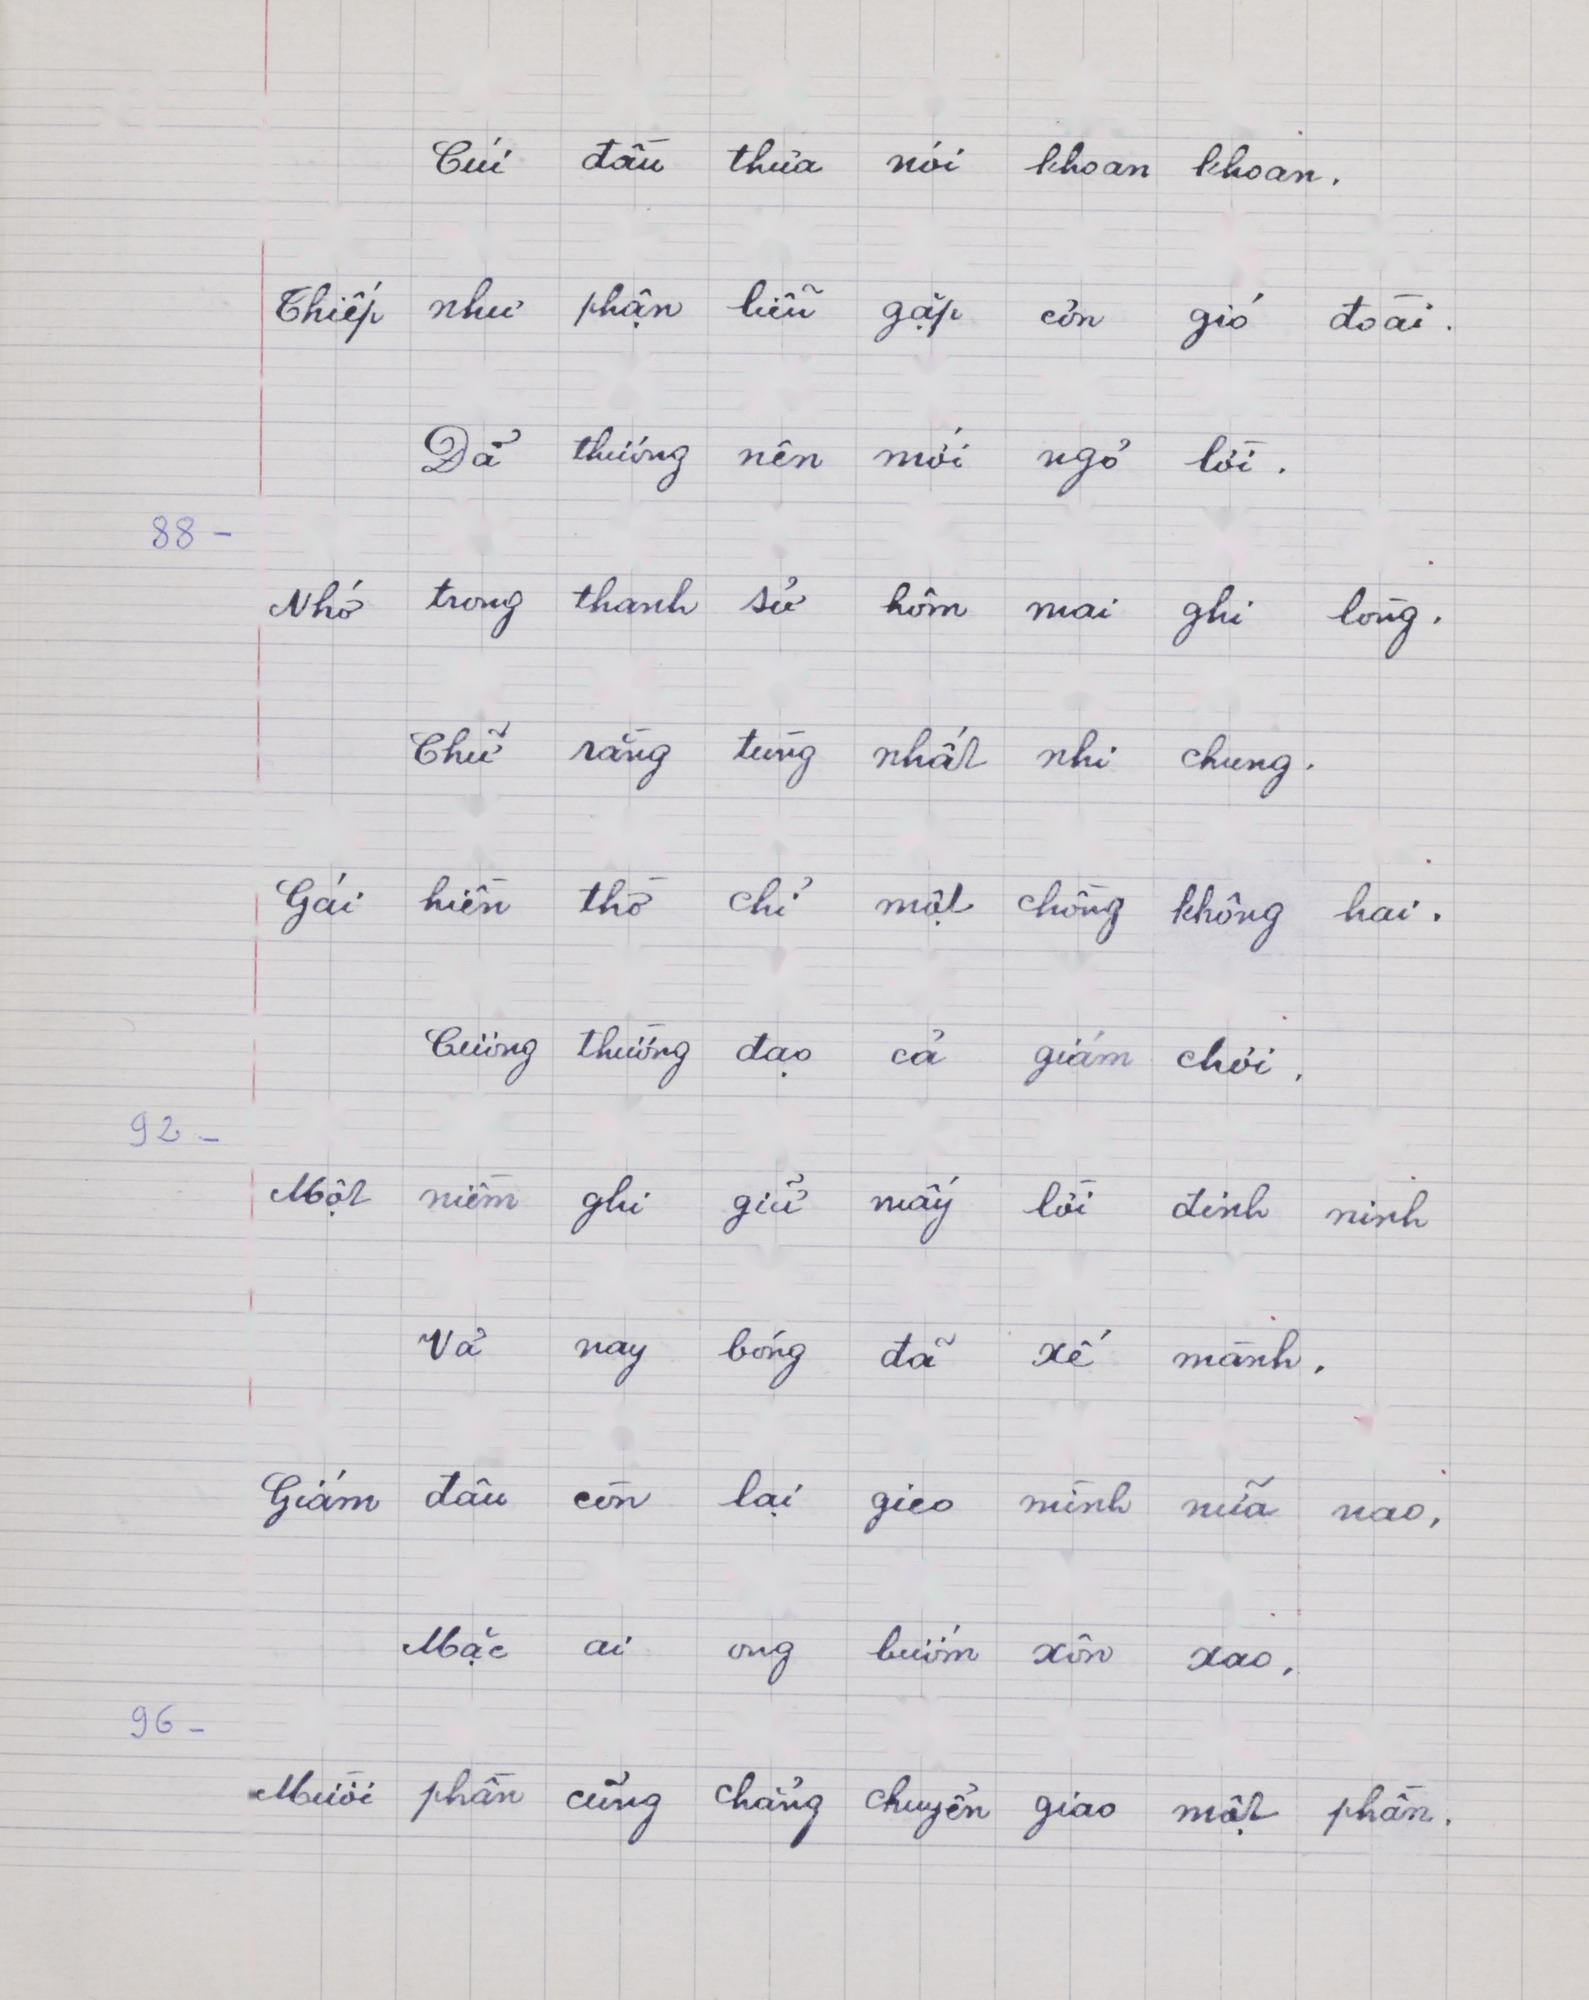 Cúi đầu thưa nói khoan khoan.
Thiếp như phận liễu gặp cơn gió đoài.
Dả thương nên mới ngỏ lời.
88 -
Nhớ trong thanh sử hôm mai ghi lòng.
Chữ rằng tùng nhất nhi chung.
Gái hiền thờ chỉ một chồng không hai.
Cương thường đạo cả giám chơi.
92 -
Một niềm ghi giữ mấy lời đinh ninh
Vả nay bóng đã xế mành.
Giám đâu còn lại gieo mình nữa nao,
Mặc ai ong bướm xôn xao,
96 -
Mười phần cũng chẳng chuyển giao một phần.